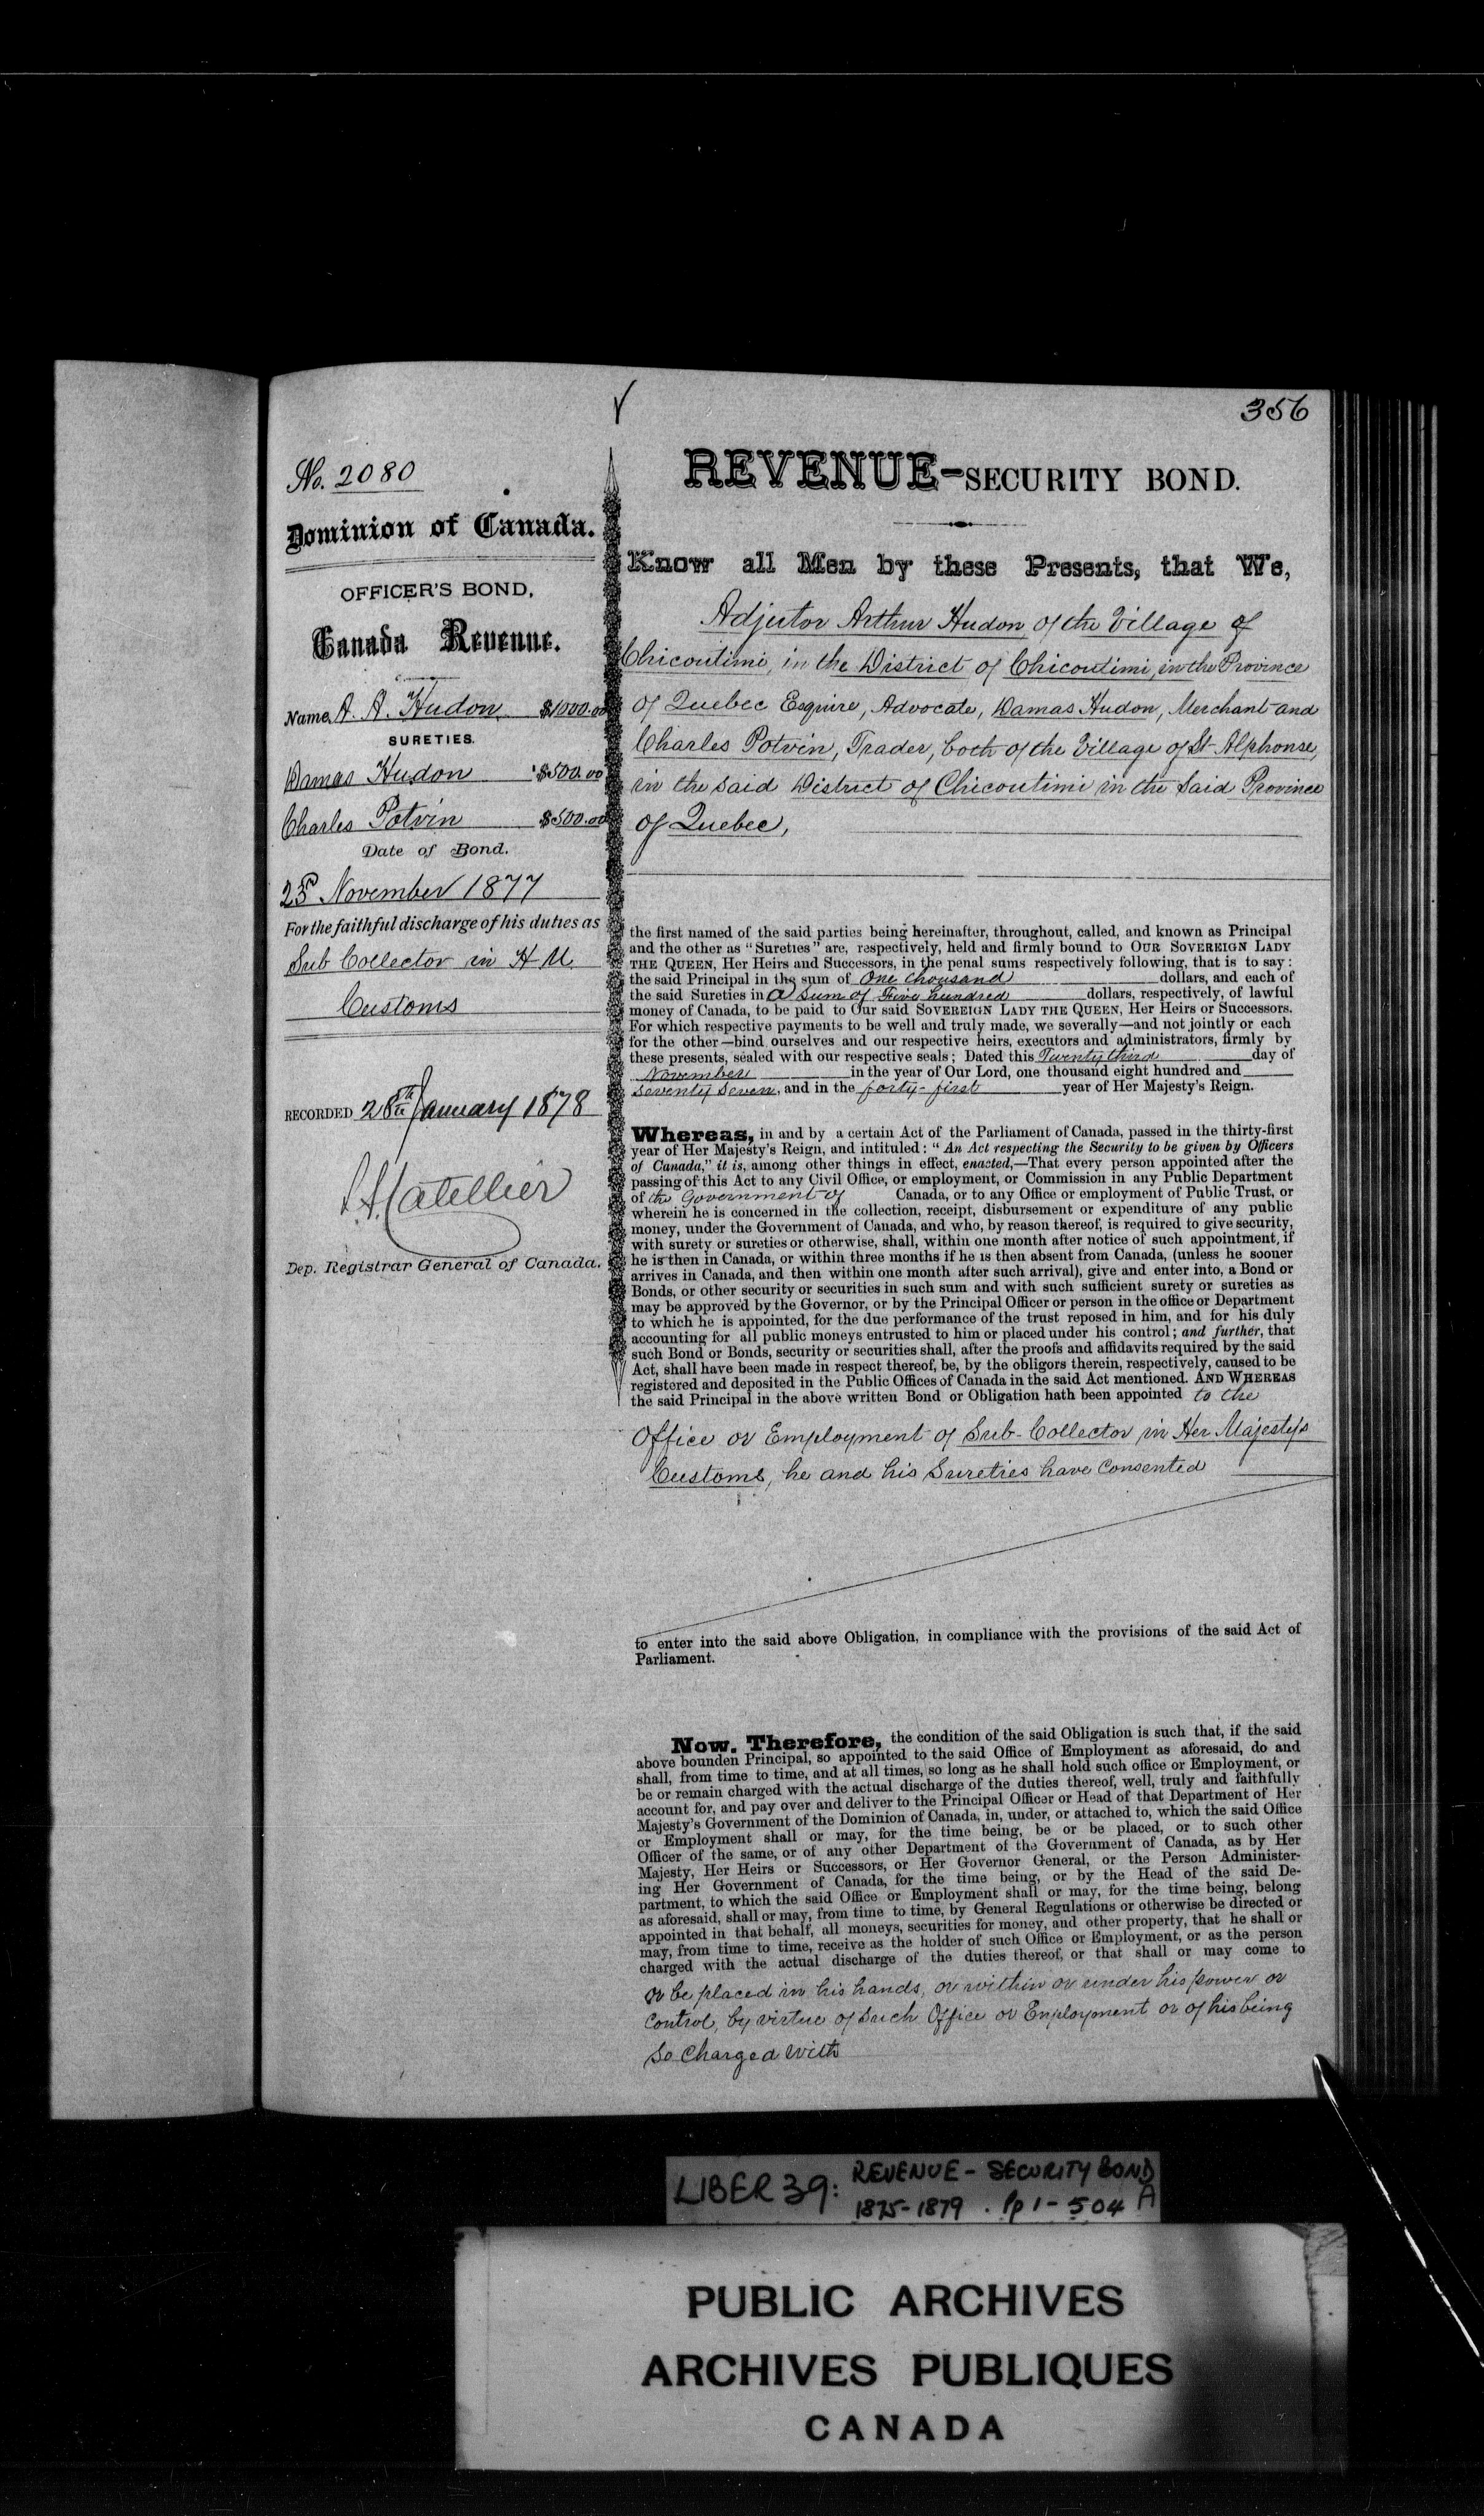 356
No. 2080
Dominion of Canada.
OFFICER'S BOND,
Canada Revenue.
Name A. A. Hudon $1000.00
SURETIES.
Damas Hudon $500.00
Charles Potvin $500.00
Date of Bond.
23rd November 1877
For the faithful discharge of his duties as
Sub Collector in H M
Customs
RECORDED 28th January 1878
Dep. Registrar General of Canada.
REVENUE-SECURITY BOND.
Know all Men by these Presents, that We,
Adjutor Arthur Hudon of the Village of
Chicoutimi, in the District of Chicoutimi, in the Province
of Quebec Esquire, Advocate, Damas Hudon, Merchant and
Charles Potvin, Trader, both of the Village of St Alphonse,
in the said District of Chicoutimi in the Said Province
of Quebec,
the first named of the said parties being hereinafter, throughout, called, and known as Principal
and the other as "Sureties" are, respectively, held and firmly bound to OUR SOVEREIGN LADY
THE QUEEN, Her Heirs and Successors, in the penal sums respectively following, that is to say:
the said Principal in the sum of One thousand dollars, and each of
the said Sureties in a Sum of Five hundred dollars, respectively, of lawful
money of Canada, to be paid to Our said SOVEREIGN LADY THE QUEEN, Her Heirs or Successors.
For which respective payments to be well and truly made, we severally—and not jointly or each
for the other—bind ourselves and our respective heirs, executors and administrators, firmly by
these presents, sealed with our respective seals; Dated this Twenty third day of
November in the year of Our Lord, one thousand eight hundred and
Seventy Seven, and in the forty-first year of Her Majesty's Reign.
Whereas, in and by a certain Act of the Parliament of Canada, passed in the thirty-first
year of Her Majesty's Reign, and intituled: "An Act respecting the Security to be given by Officers
of Canada," it is, among other things in effect, enacted,—That every person appointed after the
passing of this Act to any Civil Office, or employment, or Commission in any Public Department
of the Government of Canada, or to any Office or employment of Public Trust, or
wherein he is concerned in the collection, receipt, disbursement or expenditure of any public
money, under the Government of Canada, and who, by reason thereof, is required to give security,
with surety or sureties or otherwise, shall, within one month after notice of such appointment, if
he is then in Canada, or within three months if he is then absent from Canada, (unless he sooner
arrives in Canada, and then within one month after such arrival), give and enter into, a Bond or
Bonds, or other security or securities in such sum and with such sufficient surety or sureties as
may be approved by the Governor, or by the Principal Officer or person in the office or Department
to which he is appointed, for the due performance of the trust reposed in him, and for his duly
accounting for all public moneys entrusted to him or placed under his control; and further, that
such Bond or Bonds, security or securities shall, after the proofs and affidavits required by the said
Act, shall have been made in respect thereof, be, by the obligors therein, respectively, caused to be
registered and deposited in the Public Offices of Canada in the said Act mentioned. AND WHEREAS
the said Principal in the above written Bond or Obligation hath been appointed to the
Office or Employment of Sub-Collector in Her Majesty's
Customs, he and his Sureties have Consented
to enter into the said above Obligation, in compliance with the provisions of the said Act of
Parliament.
Now, Therefore, the condition of the said Obligation is such that, if the said
above bounden Principal, so appointed to the said Office of Employment as aforesaid, do and
shall, from time to time, and at all times, so long as he shall hold such office or Employment, or
be or remain charged with the actual discharge of the duties thereof, well, truly and faithfully
account for, and pay over and deliver to the Principal Officer or Head of that Department of Her
Majesty's Government of the Dominion of Canada, in, under, or attached to, which the said Office
or Employment shall or may, for the time being, be or be placed, or to such other
Officer of the same, or of any other Department of the Government of Canada, as by Her
Majesty, Her Heirs or Successors, or Her Governor General, or the Person Administer-
ing Her Government of Canada, for the time being, or by the Head of the said De-
partment, to which the said Office or Employment shall or may, for the time being, belong
as aforesaid, shall or may, from time to time, by General Regulations or otherwise be directed or
appointed in that behalf, all moneys, securities for money, and other property, that he shall or
may, from time to time, receive as the holder of such Office or Employment, or as the person
charged with the actual discharge of the duties thereof, or that shall or may come to
or be placed in his hands, or within or under his power or
Control, by virtue of Such Office or Employment or of his being
So Charged With
LIBER 39: REVENUE - SECURITY BOND
1875-1879 . Pp 1 - 504 A
PUBLIC ARCHIVES
ARCHIVES PUBLIQUES
CANADA